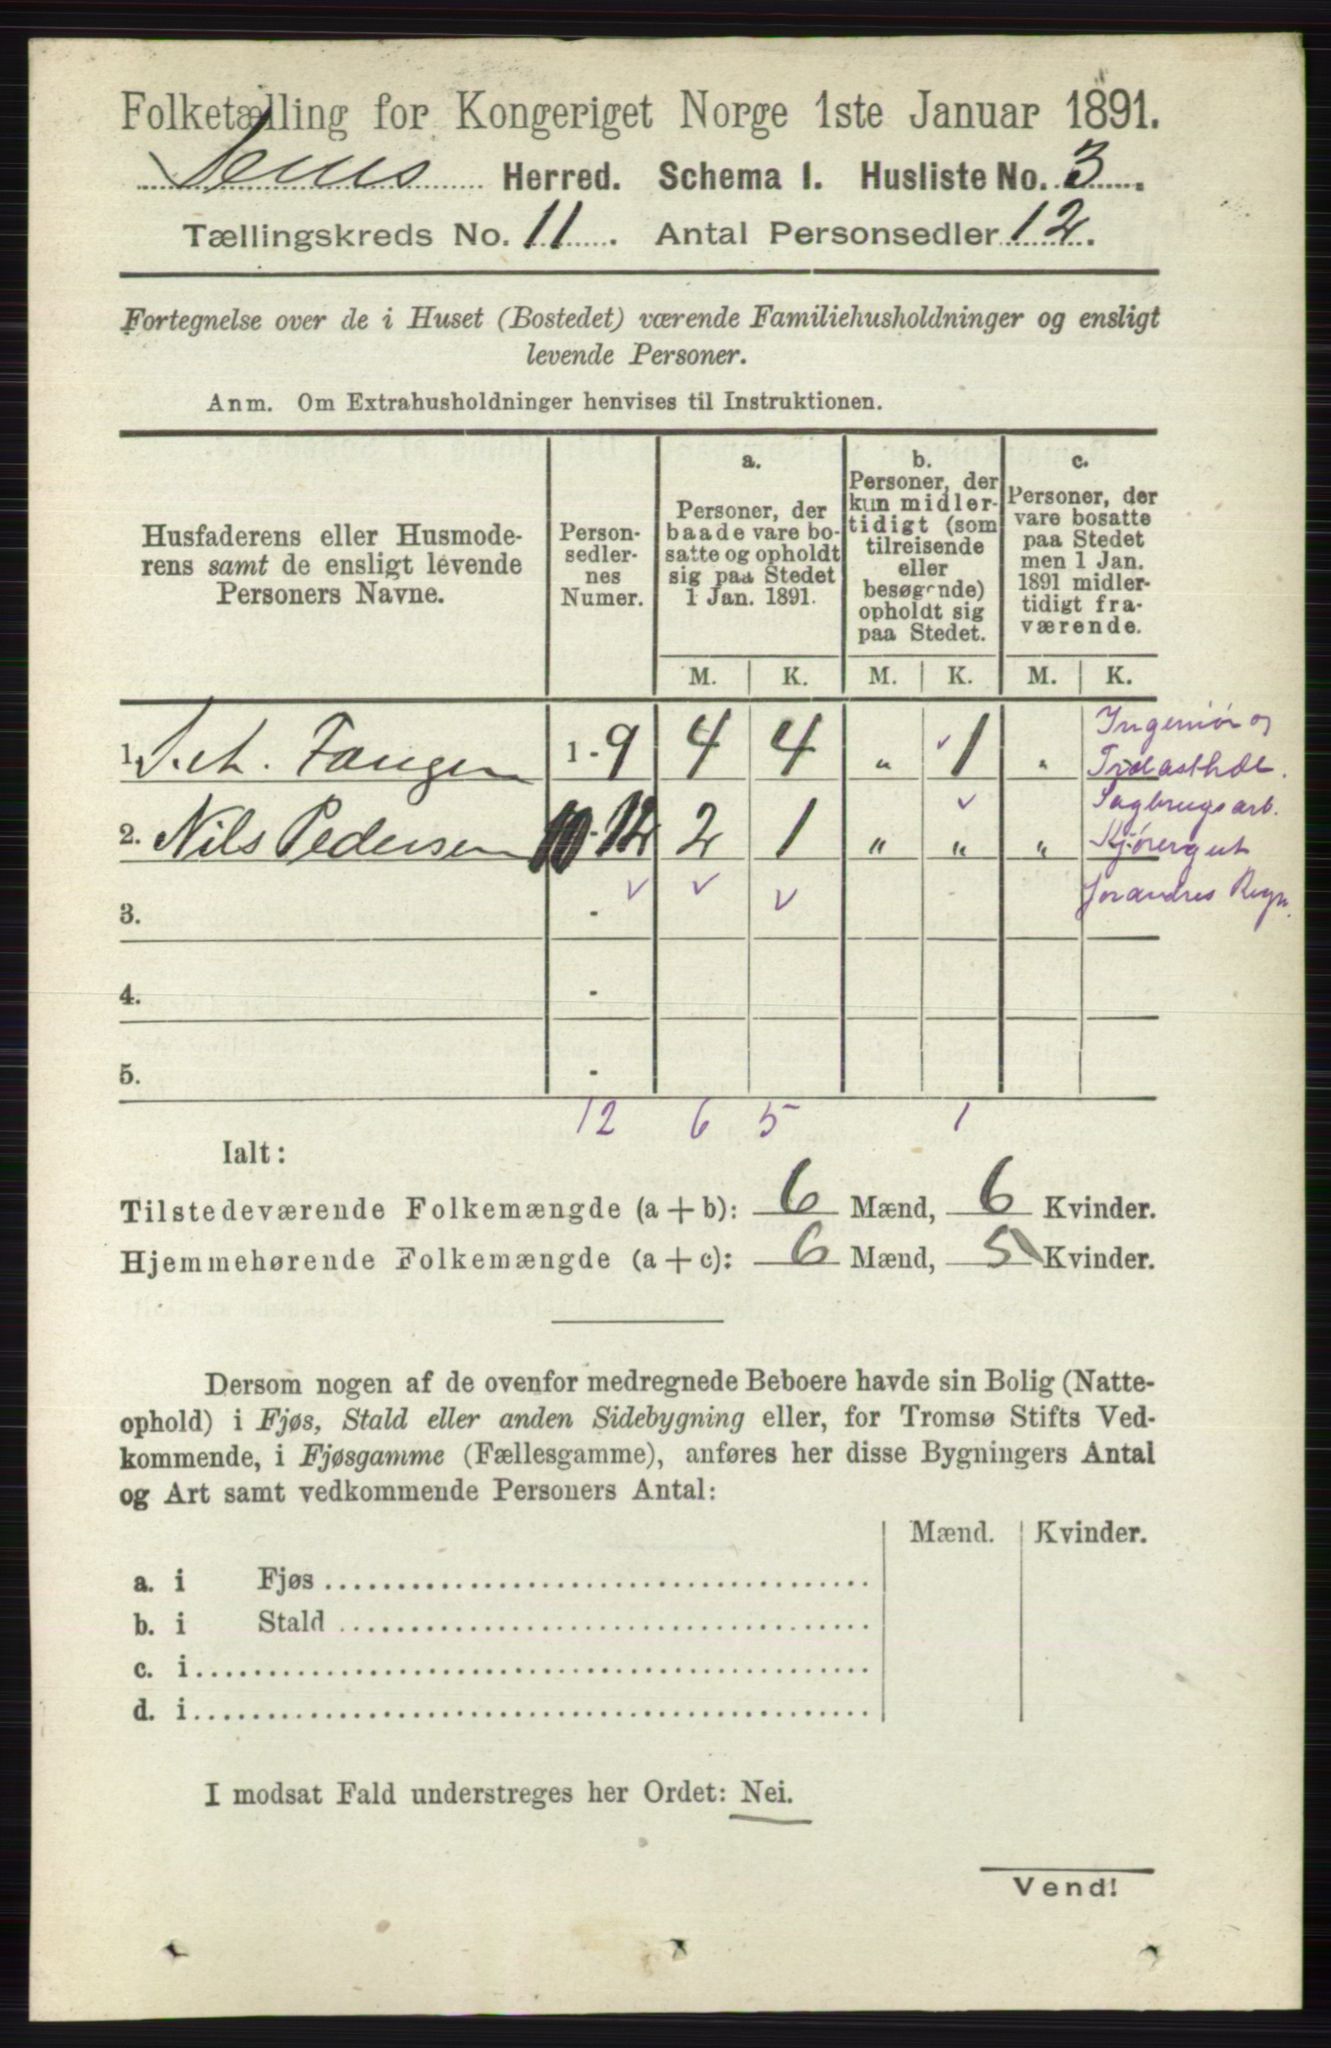 Folketælling for Kongeriget Norge 1ste Januar 1891.
Sems Herred. Schema 1. Husliste No. 3.
Tællingskreds No. 11. Antal Personsedler 12.
Fortegnelse over de i Huset (Bostedet) værende Familiehusholdninger og ensligt
levende Personer.
Anm. Om Extrahusholdninger henvises til Instruktionen.
Husfaderens eller Husmode-
rens samt de ensligt levende
Personers Navne.
Person-
sedler-
nes
Numer.
a.
Personer, der
baade vare bo-
satte og opholdt
sig paa Stedet
1 Jan. 1891.
b.
Personer, der
kun midler-
tidigt (som
tilreisende
eller
besøgende)
opholdt sig
paa Stedet.
c.
Personer, der
vare bosatte
paa Stedet
men 1 Jan.
1891 midler-
tidigt fra-
værende.
M. K. M. K. M. K.
1. Fangen 1 - 9 4 4 " 1 "
Ingeniør og
2. Nils Pedersen 10 - 12 2 1 " " "
Sagbrugsarb.
Kjøregut
3. -
4. -
5. -
12 6 5 1
Ialt:
Tilstedeværende Folkemængde (a + b): 6 Mænd, 6 Kvinder.
Hjemmehørende Folkemængde (a + c): 6 Mænd, 5 Kvinder.
Dersom nogen af de ovenfor medregnede Beboere havde sin Bolig (Natte-
ophold) i Fjøs, Stald eller anden Sidebygning eller, for Tromsø Stifts Ved-
kommende, i Fjøsgamme (Fællesgamme), anføres her disse Bygningers Antal
og Art samt vedkommende Personers Antal:
Mænd. Kvinder.
a. i Fjøs
b. i Stald
c. i
d. i
I modsat Fald understreges her Ordet: Nei.
Vend!